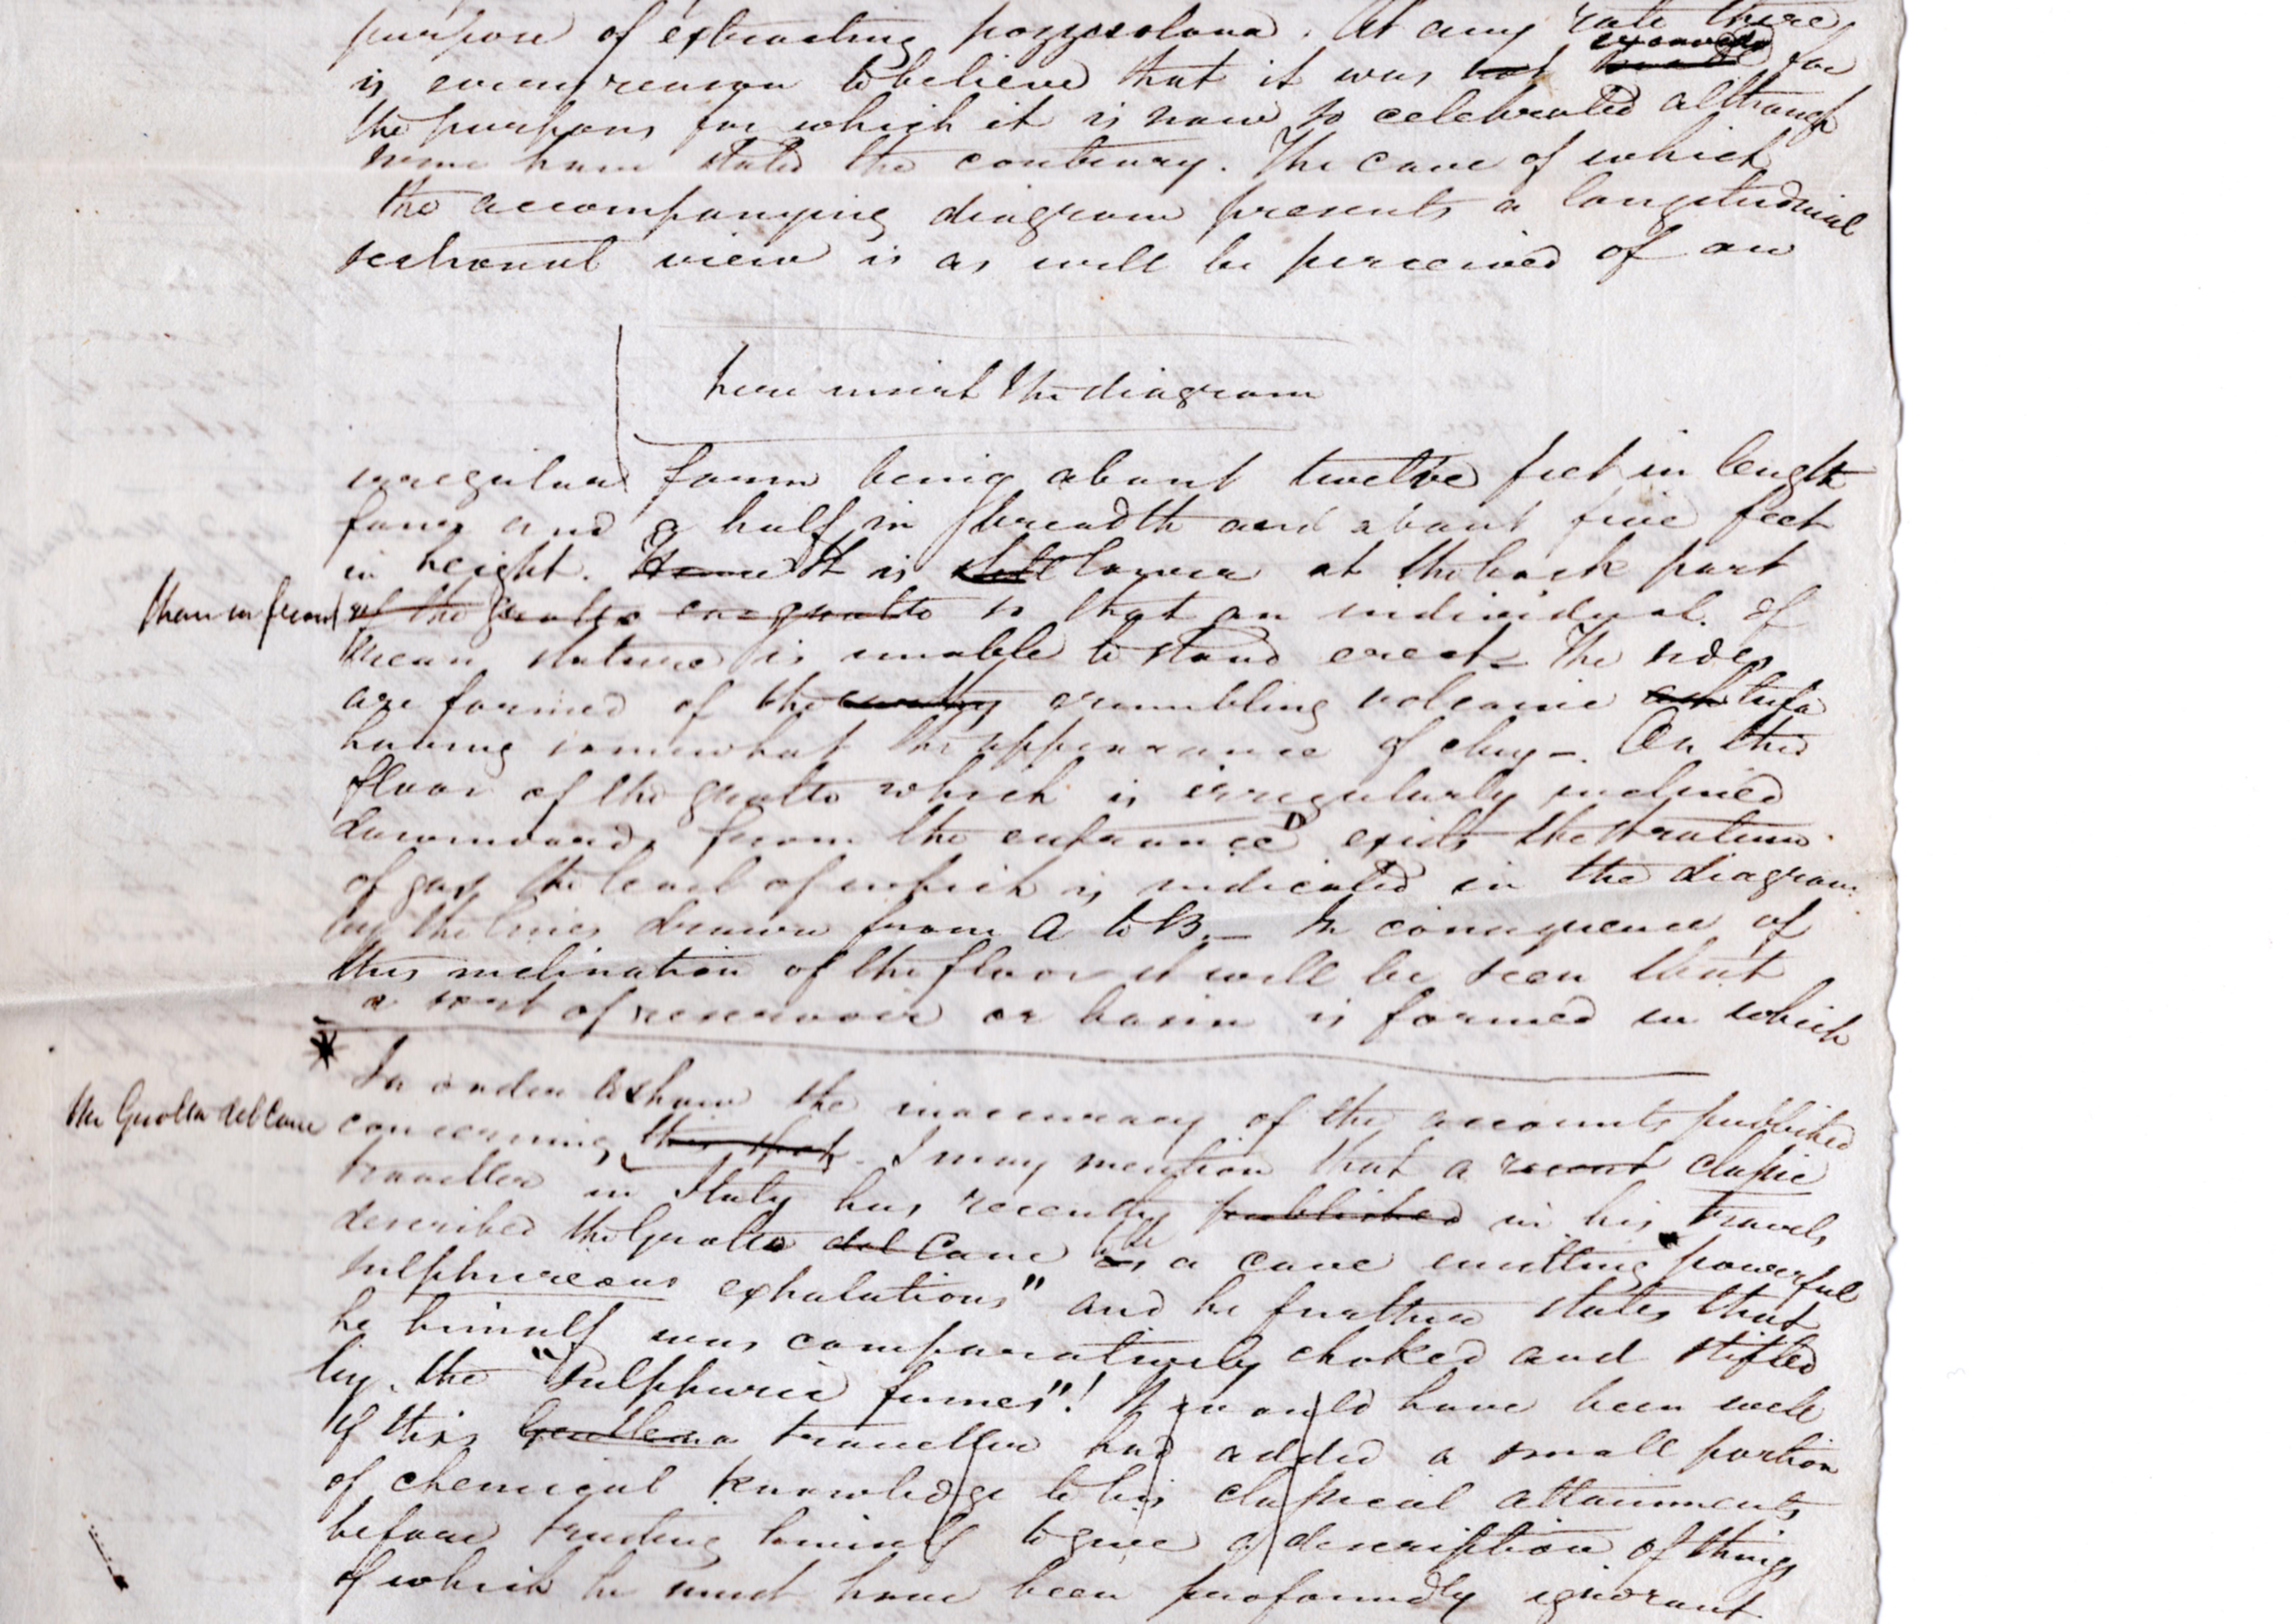 purpose of extracting pozzuolana. At any rate there
is every reason to believe that it was not made excavated for
the purpose for which it is now so celebrated although
some have stated the contrary. The cave of which
the accompanying diagram presents a longitudinal
sectional view is as will be perceived of an
here insert the diagram
irregular form being about twelve feet in length
four and a half in breadth and about five feet
in height. It is still lower at the back part
than in front of the grotto so that an individual of
mean stature is unable to stand erect – The sides
are formed of the crumbling volcanic ash tufa
having somewhat the appearance of clay –. On the
floor of the grotto which is irregularly inclined
downwards from the entrance D exists the stratum
of gas the level of which is indicated in the diagram
by the lines drawn from A to B. – In consequence of
this inclination of the floor it will be seen that
a sort of reservoir or basin is formed in which
* In order to show the inaccuracy of the accounts published
the Grotta del Cane concerning this spot. I may mention that a recent classic
traveller in Italy has recently published in his travels
described the Grotta del Cane as a cave emitting "powerful
sulphureous exhalations" and he further states that
he himself was comparatively choked and stifled
by the "Sulphuric fumes"! It would have been well
if this traveller had added a small portion
of chemical knowledge to his classical attainments
before trusting himself to give a description of things
of which he must have been profoundly ignorant